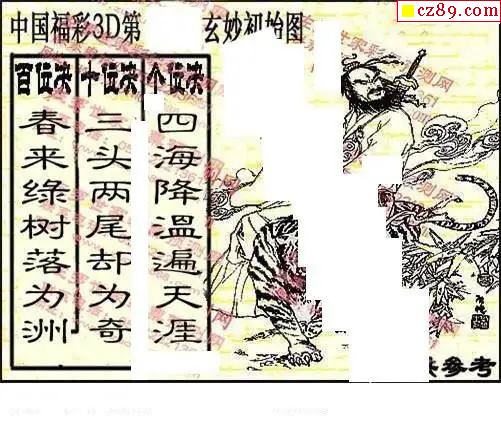 cz89.com
中国福彩3D第 玄妙初始图
百位决 十位决 个位决
春来绿树落为洲
三头两尾却为奇
四海降温遍天涯
参考